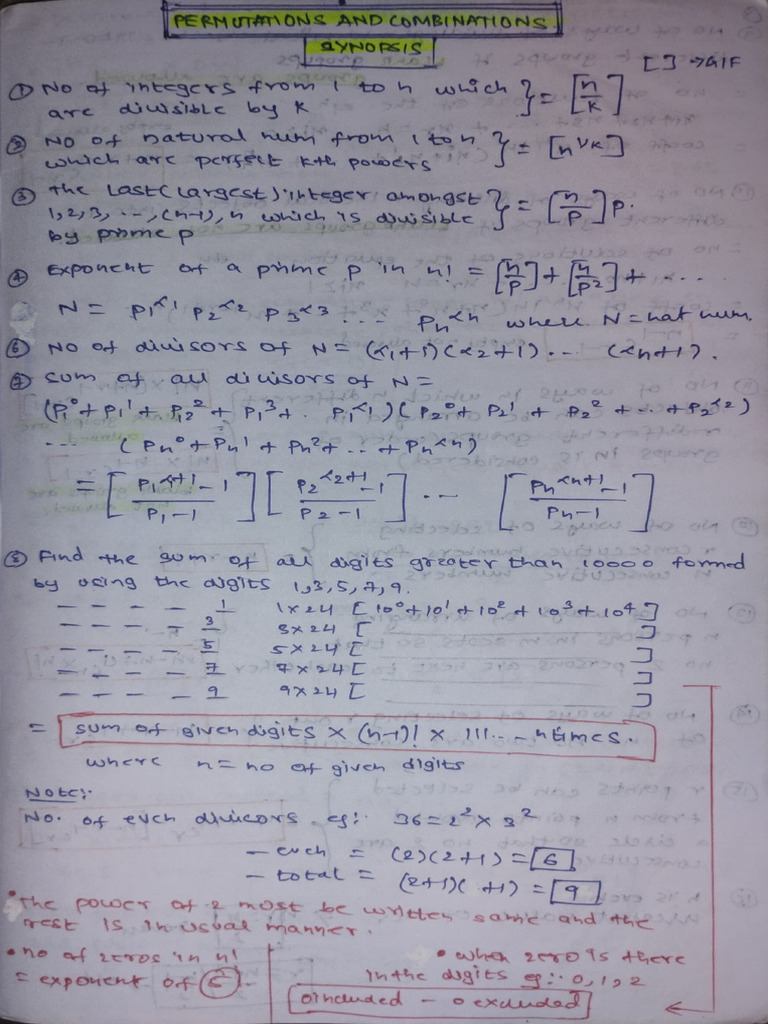 PERMUTATIONS AND COMBINATIONS
SYNOPSIS
[ ] → GIF
① No of integers from 1 to n which are divisible by K } = [n/K]
② No of natural num from 1 to n which are perfect kth powers } = [n^1/K]
③ The Last(largest) integer amongst 1,2,3, ..., (n-1), n which is divisible by prime p } = [n/P] P.
④ Exponent of a prime p in n! = [n/p] + [n/p²] + ...
N = P1^α1 P2^α2 P3^α3 ... Pn^αn where N = nat num.
⑥ No of divisors of N = (α1+1)(α2+1)... (αn+1).
⑦ Sum of all divisors of N =
(P1^0 + P1^1 + P1^2 + P1^3 + . P1^α1) (P2^0 + P2^1 + P2^2 + .. + P2^α2)
... (Pn^0 + Pn^1 + Pn^2 + .. + Pn^αn)
= [P1^α1+1 -1 / P1-1] [P2^α2+1 -1 / P2-1] ... [Pn^αn+1 -1 / Pn-1]
⑧ Find the sum of all digits greater than 10000 formed
by using the digits 1,3,5,7,9.
— — — — 1 1×24 [10^0+10^1+10^2+10^3+10^4]
— — — — 3 3×24 [ ]
— — — — 5 5×24 [ ]
— — — — 7 7×24 [ ]
— — — — 9 9×24 [ ]
= sum of given digits × (n-1)! × 111... - ntimes.
where n = no of given digits
Note:-
No. of even divisors eg:- 36 = 2² × 3²
- even = (2)(2+1) = 6
- total = (2+1)( +1) = 9
• The power of 2 must be written same and the
rest is in usual manner.
• no of zeros in n!
= exponent of 5
• when zero is there
in the digits eg:- 0,1,2
0 included - 0 excluded